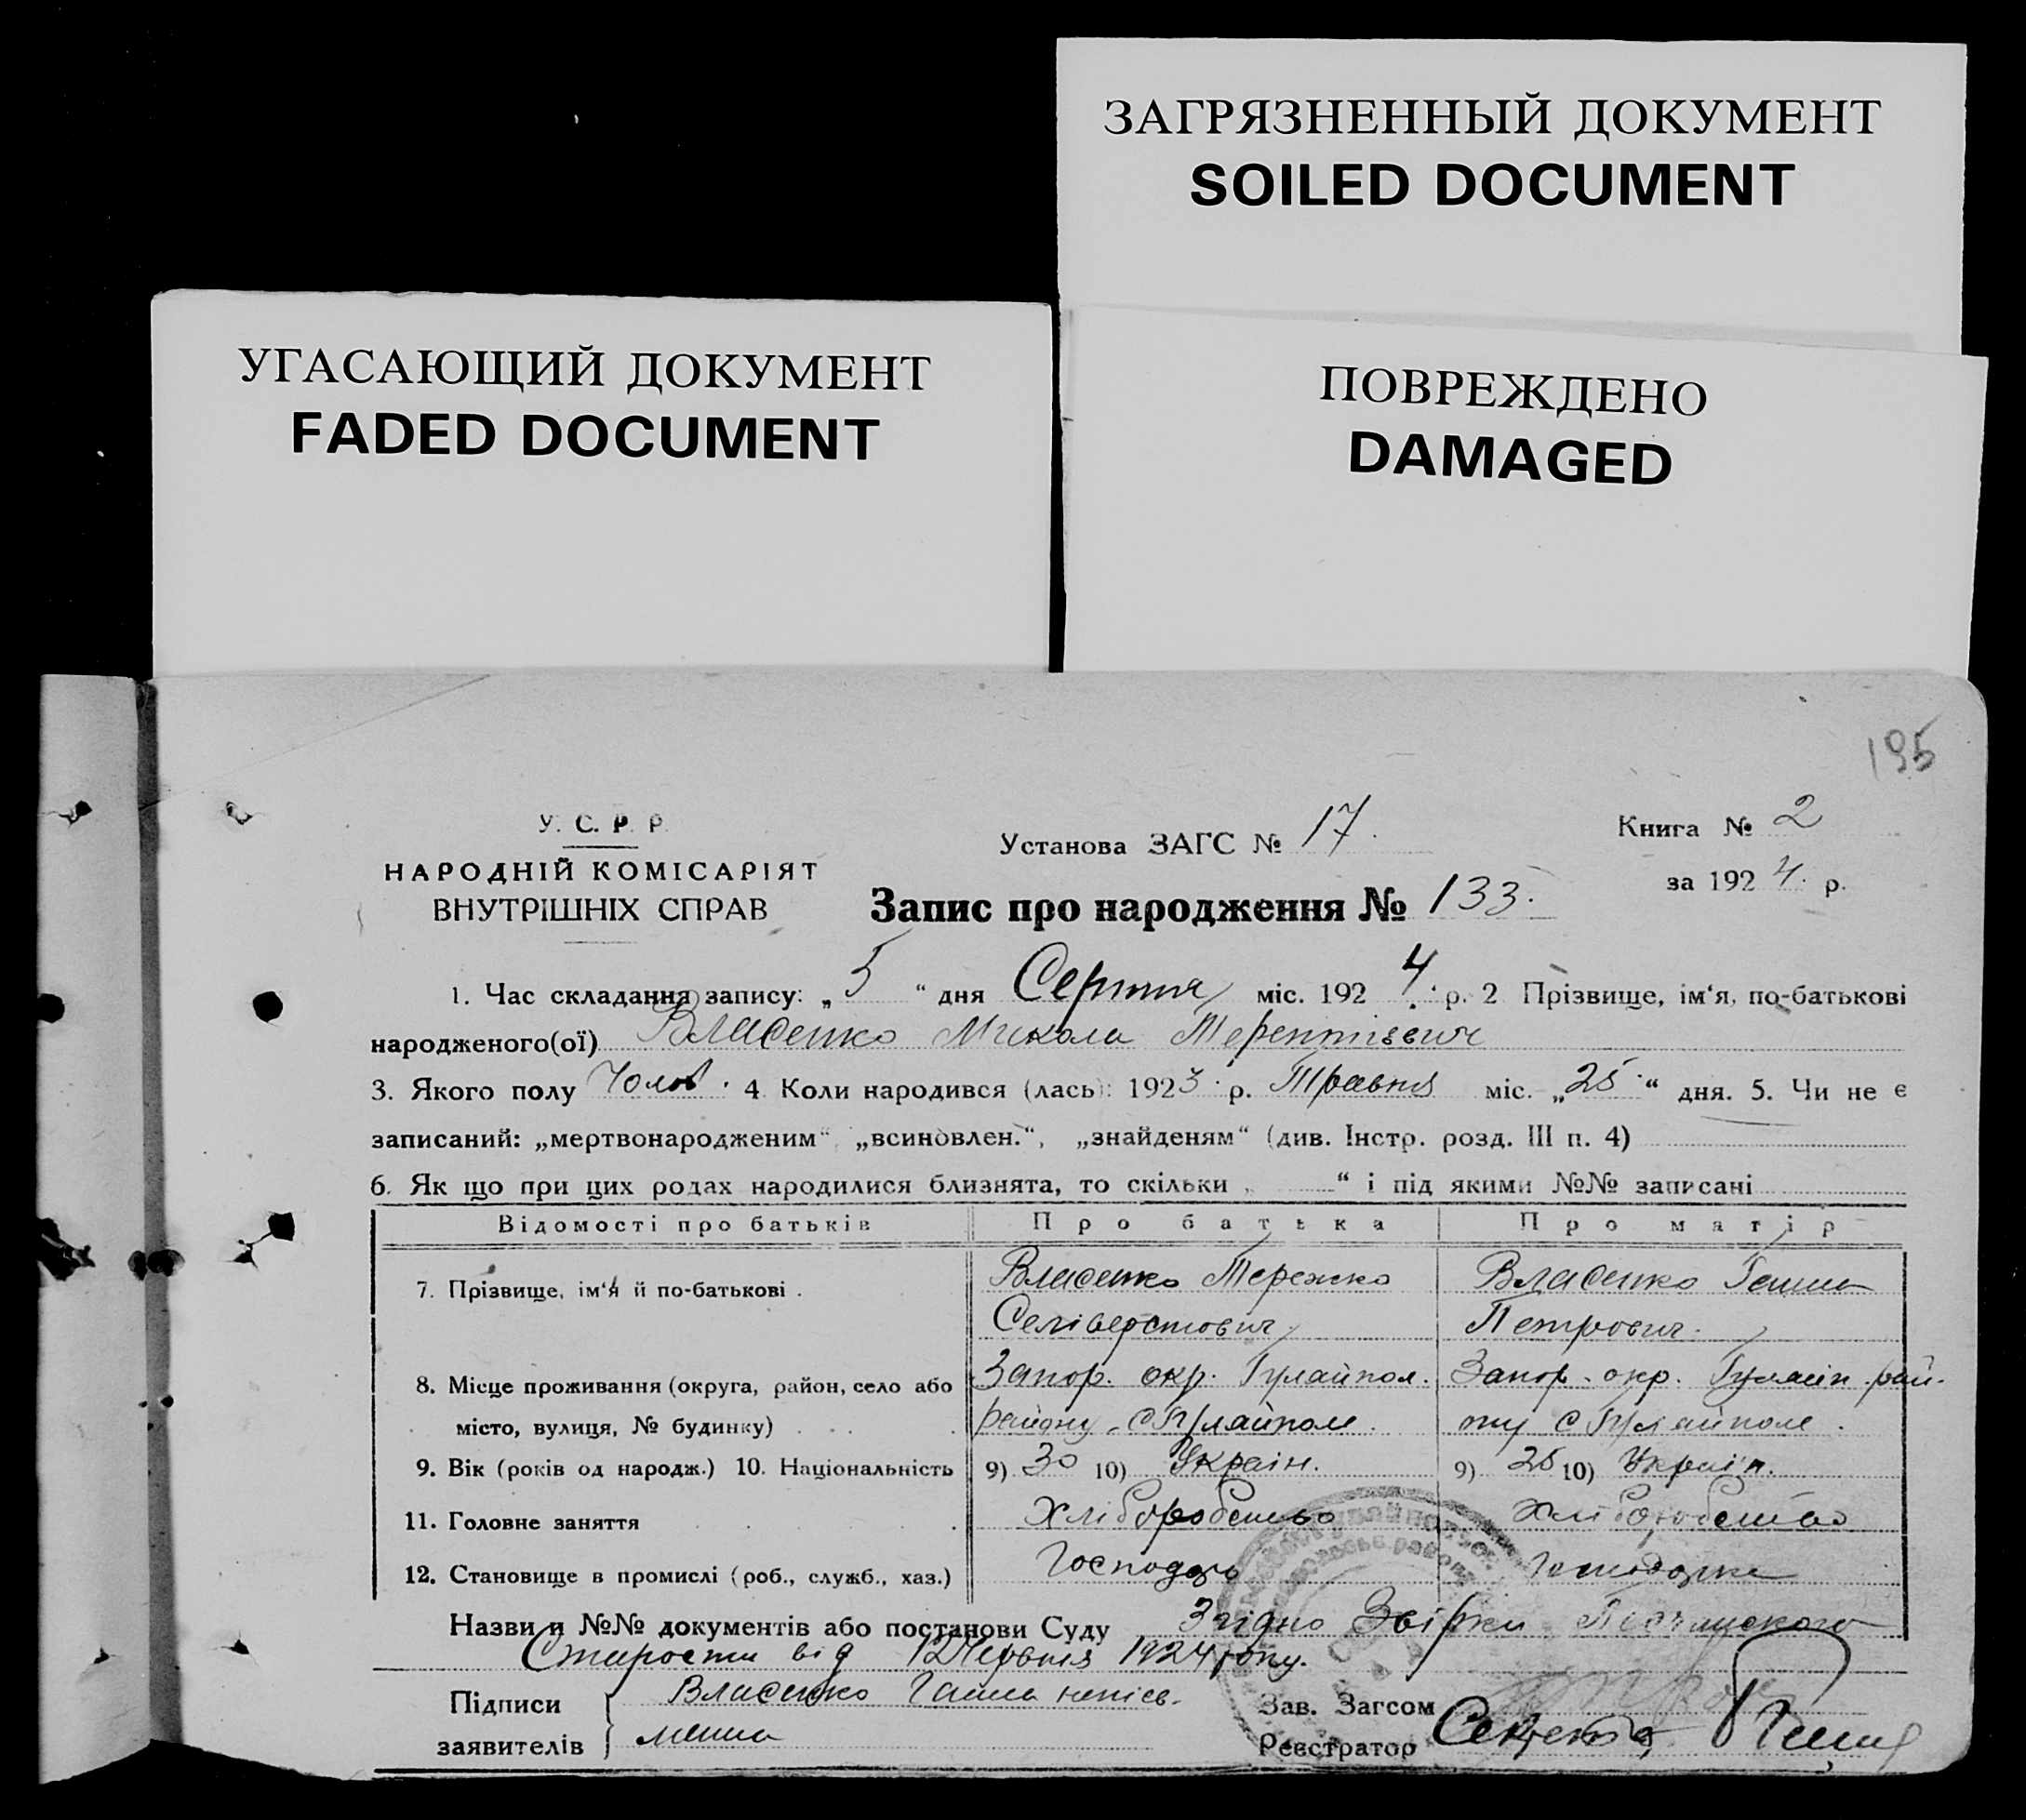 ЗАГРЯЗНЕННЫЙ ДОКУМЕНТ
SOILED DOCUMENT
УГАСАЮЩИЙ ДОКУМЕНТ
FADED DOCUMENT
ПОВРЕЖДЕНО
DAMAGED
195
У. С. Р. Р.
НАРОДНІЙ КОМІСАРІЯТ
ВНУТРІШНІХ СПРАВ
Установа ЗАГС № 17.
Книга № 2
за 1924. р.
Запис про народження № 133.
1. Час складання запису: „5“ дня Серпня міс. 1924. р. 2 Прізвище, ім‘я, по-батькові
народженого(ої) Власенко Микола Терентієвич
3. Якого полу Чолов. 4 Коли народився (лась): 1923. р. Травня міс. „25.“ дня. 5. Чи не є
записаний: „мертвонародженим“ „всиновлен.“, „знайденям“ (див. Інстр. розд. III п. 4)
6. Як що при цих родах народилися близнята, то скільки „ “ і під якими №№ записані
Відомості про батьків Про батька Про матір
7. Прізвище, ім‘я й по-батькові . Власенко Терешко Власенко Ганна
Селіверстович Петрович.
8. Місце проживання (округа, район, село або Запор. окр. Гуляйпол. Запор. окр. Гуляйп. рай-
місто, вулиця, № будинку) району, с Гуляйполе. ну с Гуляйполе.
9. Вік (років од народж.) 10. Національність 9) 30 10) Україн. 9) 25 10) Україн.
11. Головне заняття Хліборобство Хліборобство
12. Становище в промислі (роб., служб., хаз.) Господарь Господарка
Назви и №№ документів або постанови Суду Згідно Звірки
Старости від 12 Червня 1924 року.
Підписи заявителів Власенко Ганна неписьменна
Зав. Загсом
Реєстратор